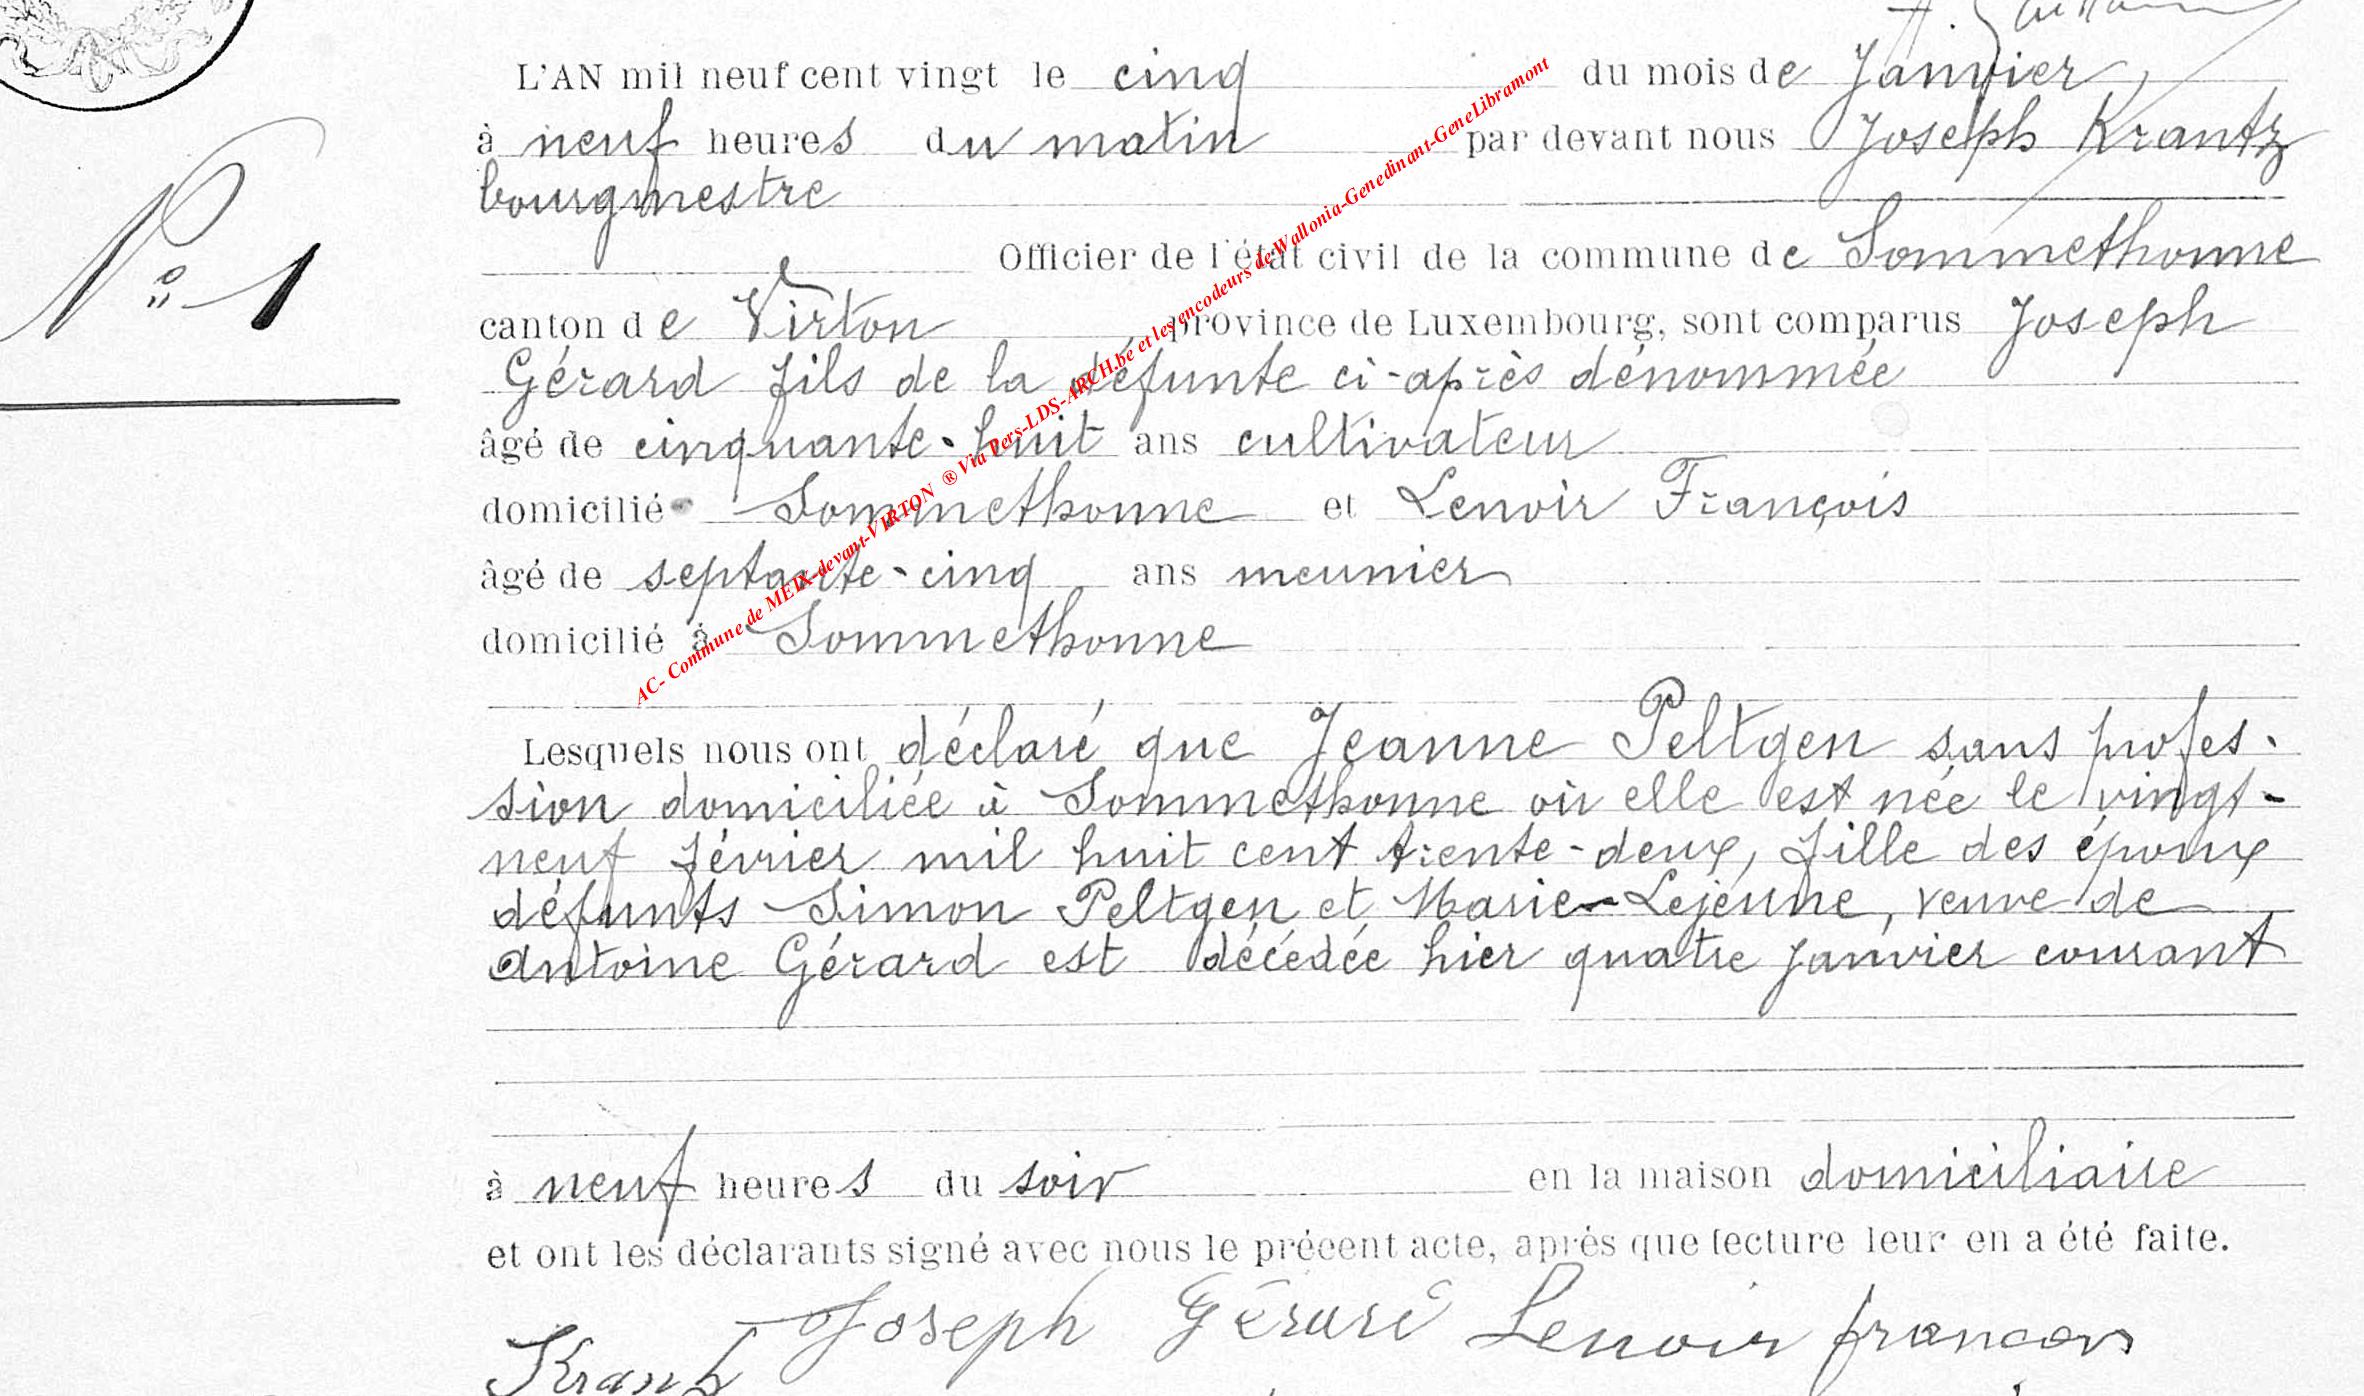 L'AN mil neuf cent vingt le cinq du mois de Janvier,
à neuf heures du matin par devant nous Joseph Krantz
bourgmestre
Officier de l'état civil de la commune de Sommethonne
canton de Virton province de Luxembourg, sont comparus Joseph
Gérard fils de la défunte ci-après dénommée
âgé de cinquante-huit ans cultivateur
domicilié Sommethonne et Lenoir François
âgé de septante-cinq ans meunier
domicilié à Sommethonne
Lesquels nous ont déclaré que Jeanne Peltgen sans profes-
sion domiciliée à Sommethonne où elle est née le vingt-
neuf février mil huit cent trente-deux, fille des époux
défunts Simon Peltgen et Marie-Lejeune, veuve de
Antoine Gérard est décédée hier quatre janvier courant
à neuf heures du soir en la maison domiciliaire
et ont les déclarants signé avec nous le précent acte, après que lecture leur en a été faite.
Joseph Gérard Lenoir francois
Krantz
N° 1
AC- Commune de MEIX-devant-VIRTON ® Via Pers-LDS-ARCH.be et les encodeurs de Wallonia-Genedinant-GeneLibramont